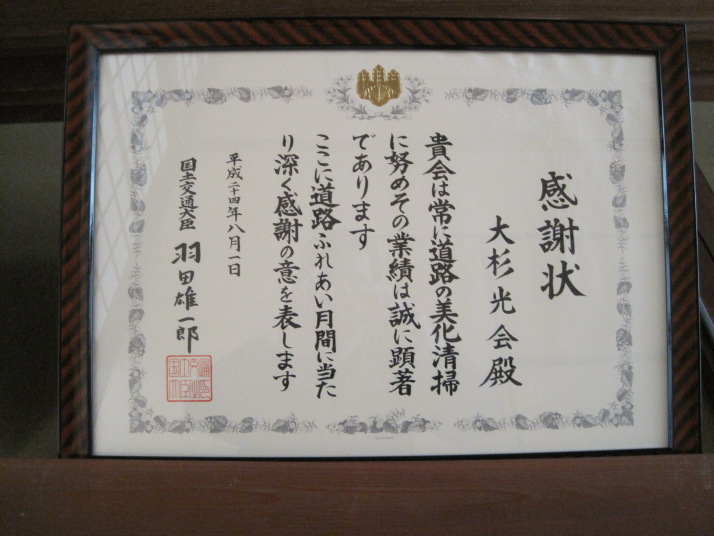 感謝状
大杉光会殿
貴会は常に道路の美化清掃
に努めその業績は誠に顕著
であります
ここに道路ふれあい月間に当た
り深く感謝の意を表します
平成二十四年八月一日
国土交通大臣 羽田雄一郎